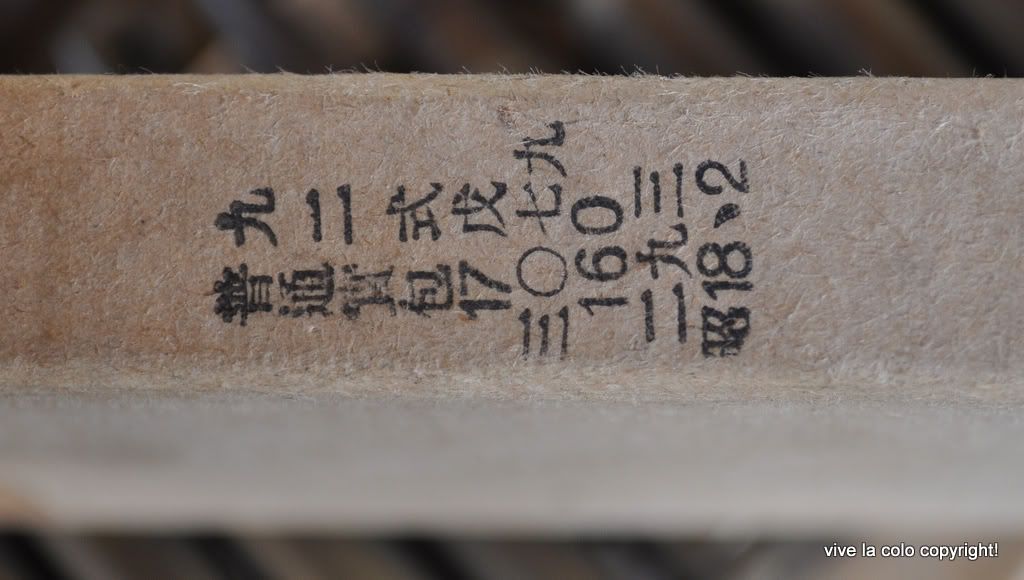 九二式
普通實包
17戊
三〇七九
160
二九三
昭18、2
vive la colo copyright!